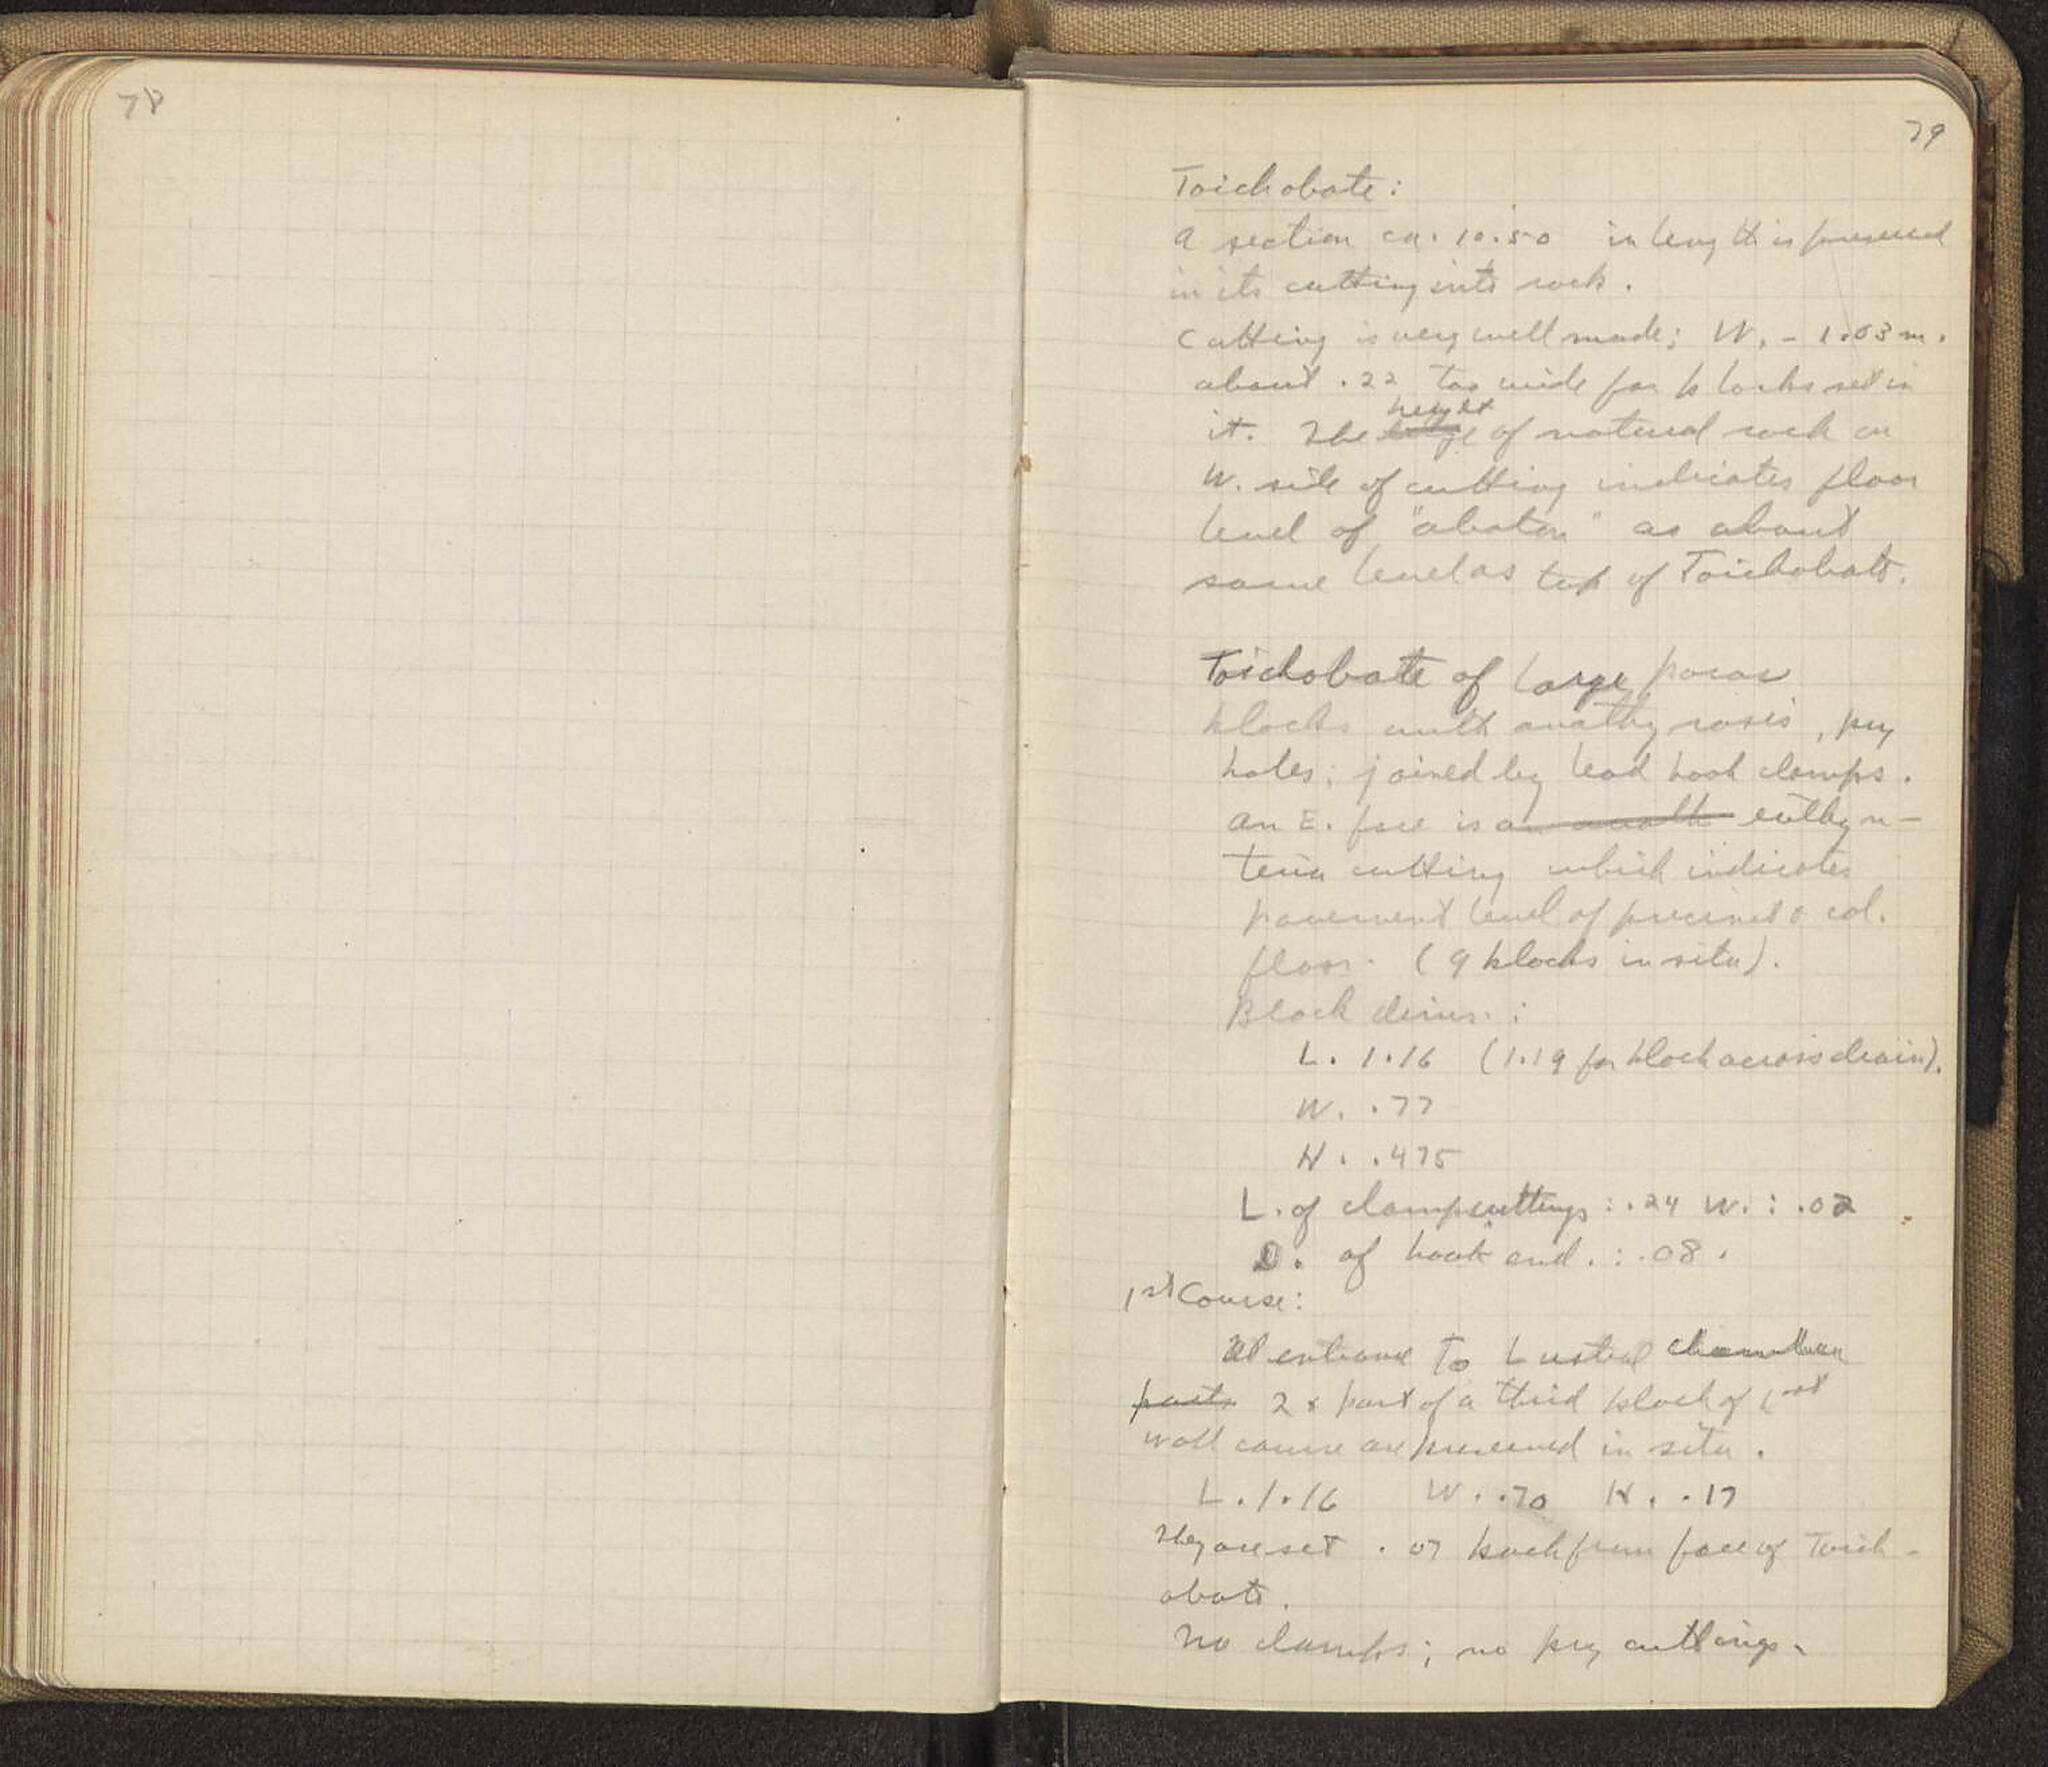 78
79
Toichobate:
A section ca. 10.50 in length is preserved
in its cutting into rock.
Cutting is very well made; W. - 1.03 m.
about .22 too wide for blocks set in
it. The height of natural rock on
W. side of cutting indicates floor
level of "abaton" as about
same level as top of Toichobate.
Toichobate of large poros
blocks with anathyrosis, pry
holes; joined by lead hook clamps.
On E. face is an anath euthyn-
teria cutting which indicates
pavement level of precinct & col.
floor. (9 blocks in situ).
Block dims. :
L. 1.16 (1.19 for block across drain).
W. .77
H. .475
L. of clamp cuttings : .24 W. : .02
D. of hook end. : .08.
1st Course:
At entrance to Lustral chamber
parts 2 & part of a third block of 1st
wall course are preserved in situ.
L. 1.16 W. .70 H. .17
They are set .07 back from face of Toich-
obate.
No clamps; no pry cuttings.